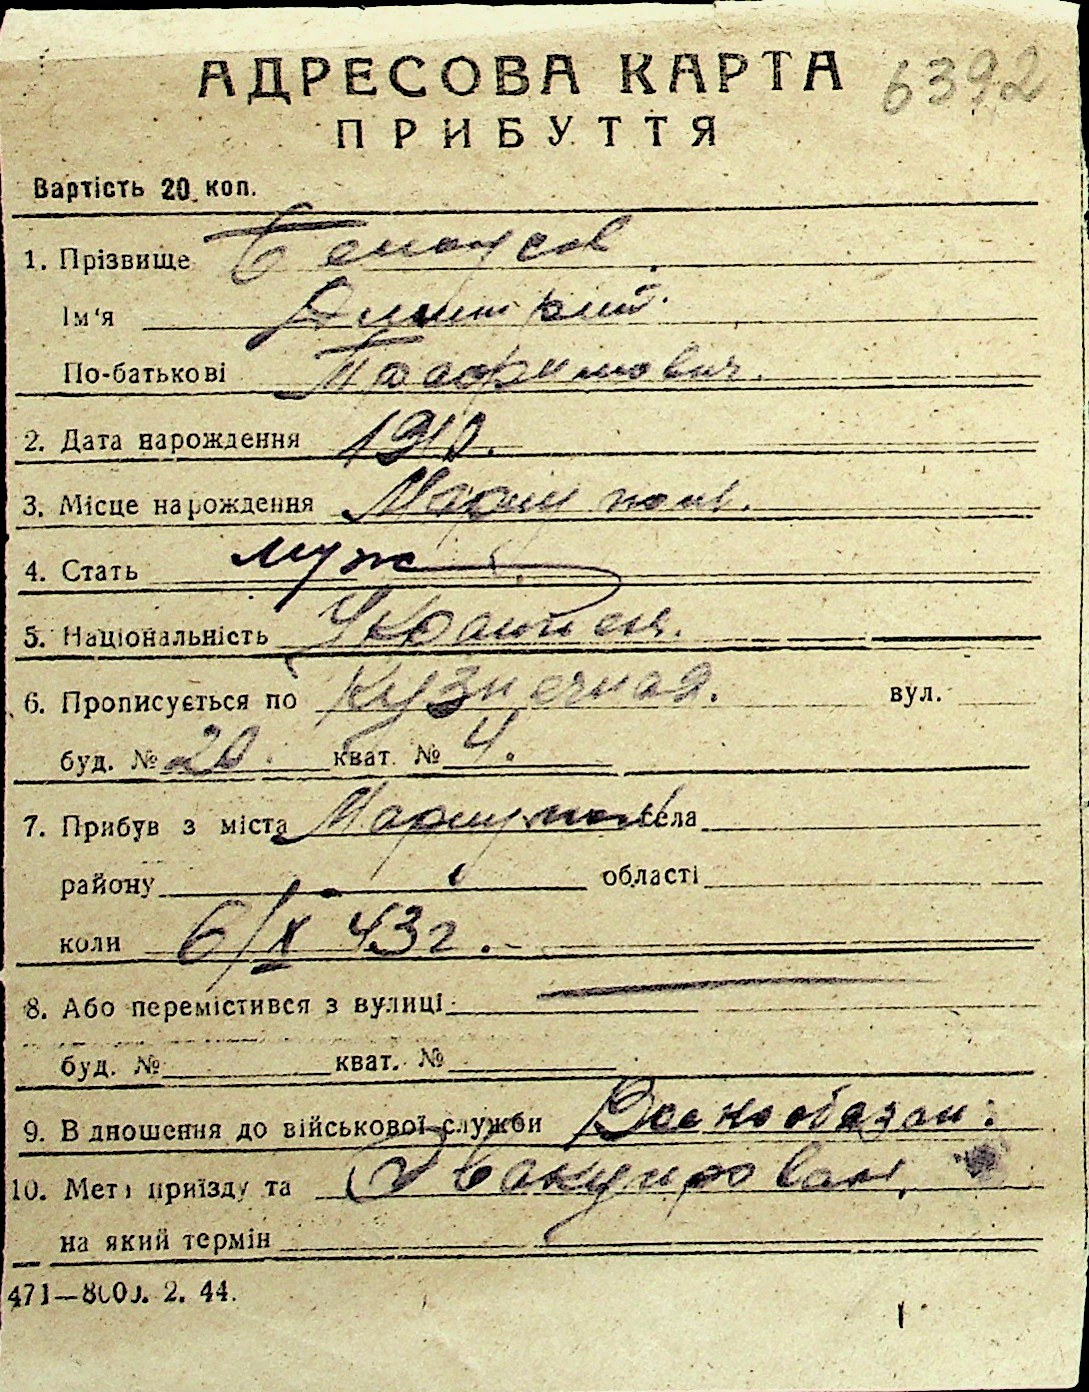 АДРЕСОВА КАРТА 6392
ПРИБУТТЯ
Вартість 20 коп.
1. Прізвище Белоусов
Ім'я Дмитрий.
По-батькові
2. Дата нарождення 1910.
3. Місце нарождення Мариуполь.
4. Стать муж
5. Національність Украинец.
6. Прописується по Кузнечная. вул.
буд. № 20. кват. № 4.
7. Прибув з міста Мариуполь села
району області
коли 6/X 43 г.
8. Або перемістився з вулиці
буд. № кват. №
9. В дношення до військової служби Военнообязан.
10. Мет приїзду та Эвакуирован.
на який термін
471—8000. 2. 44.